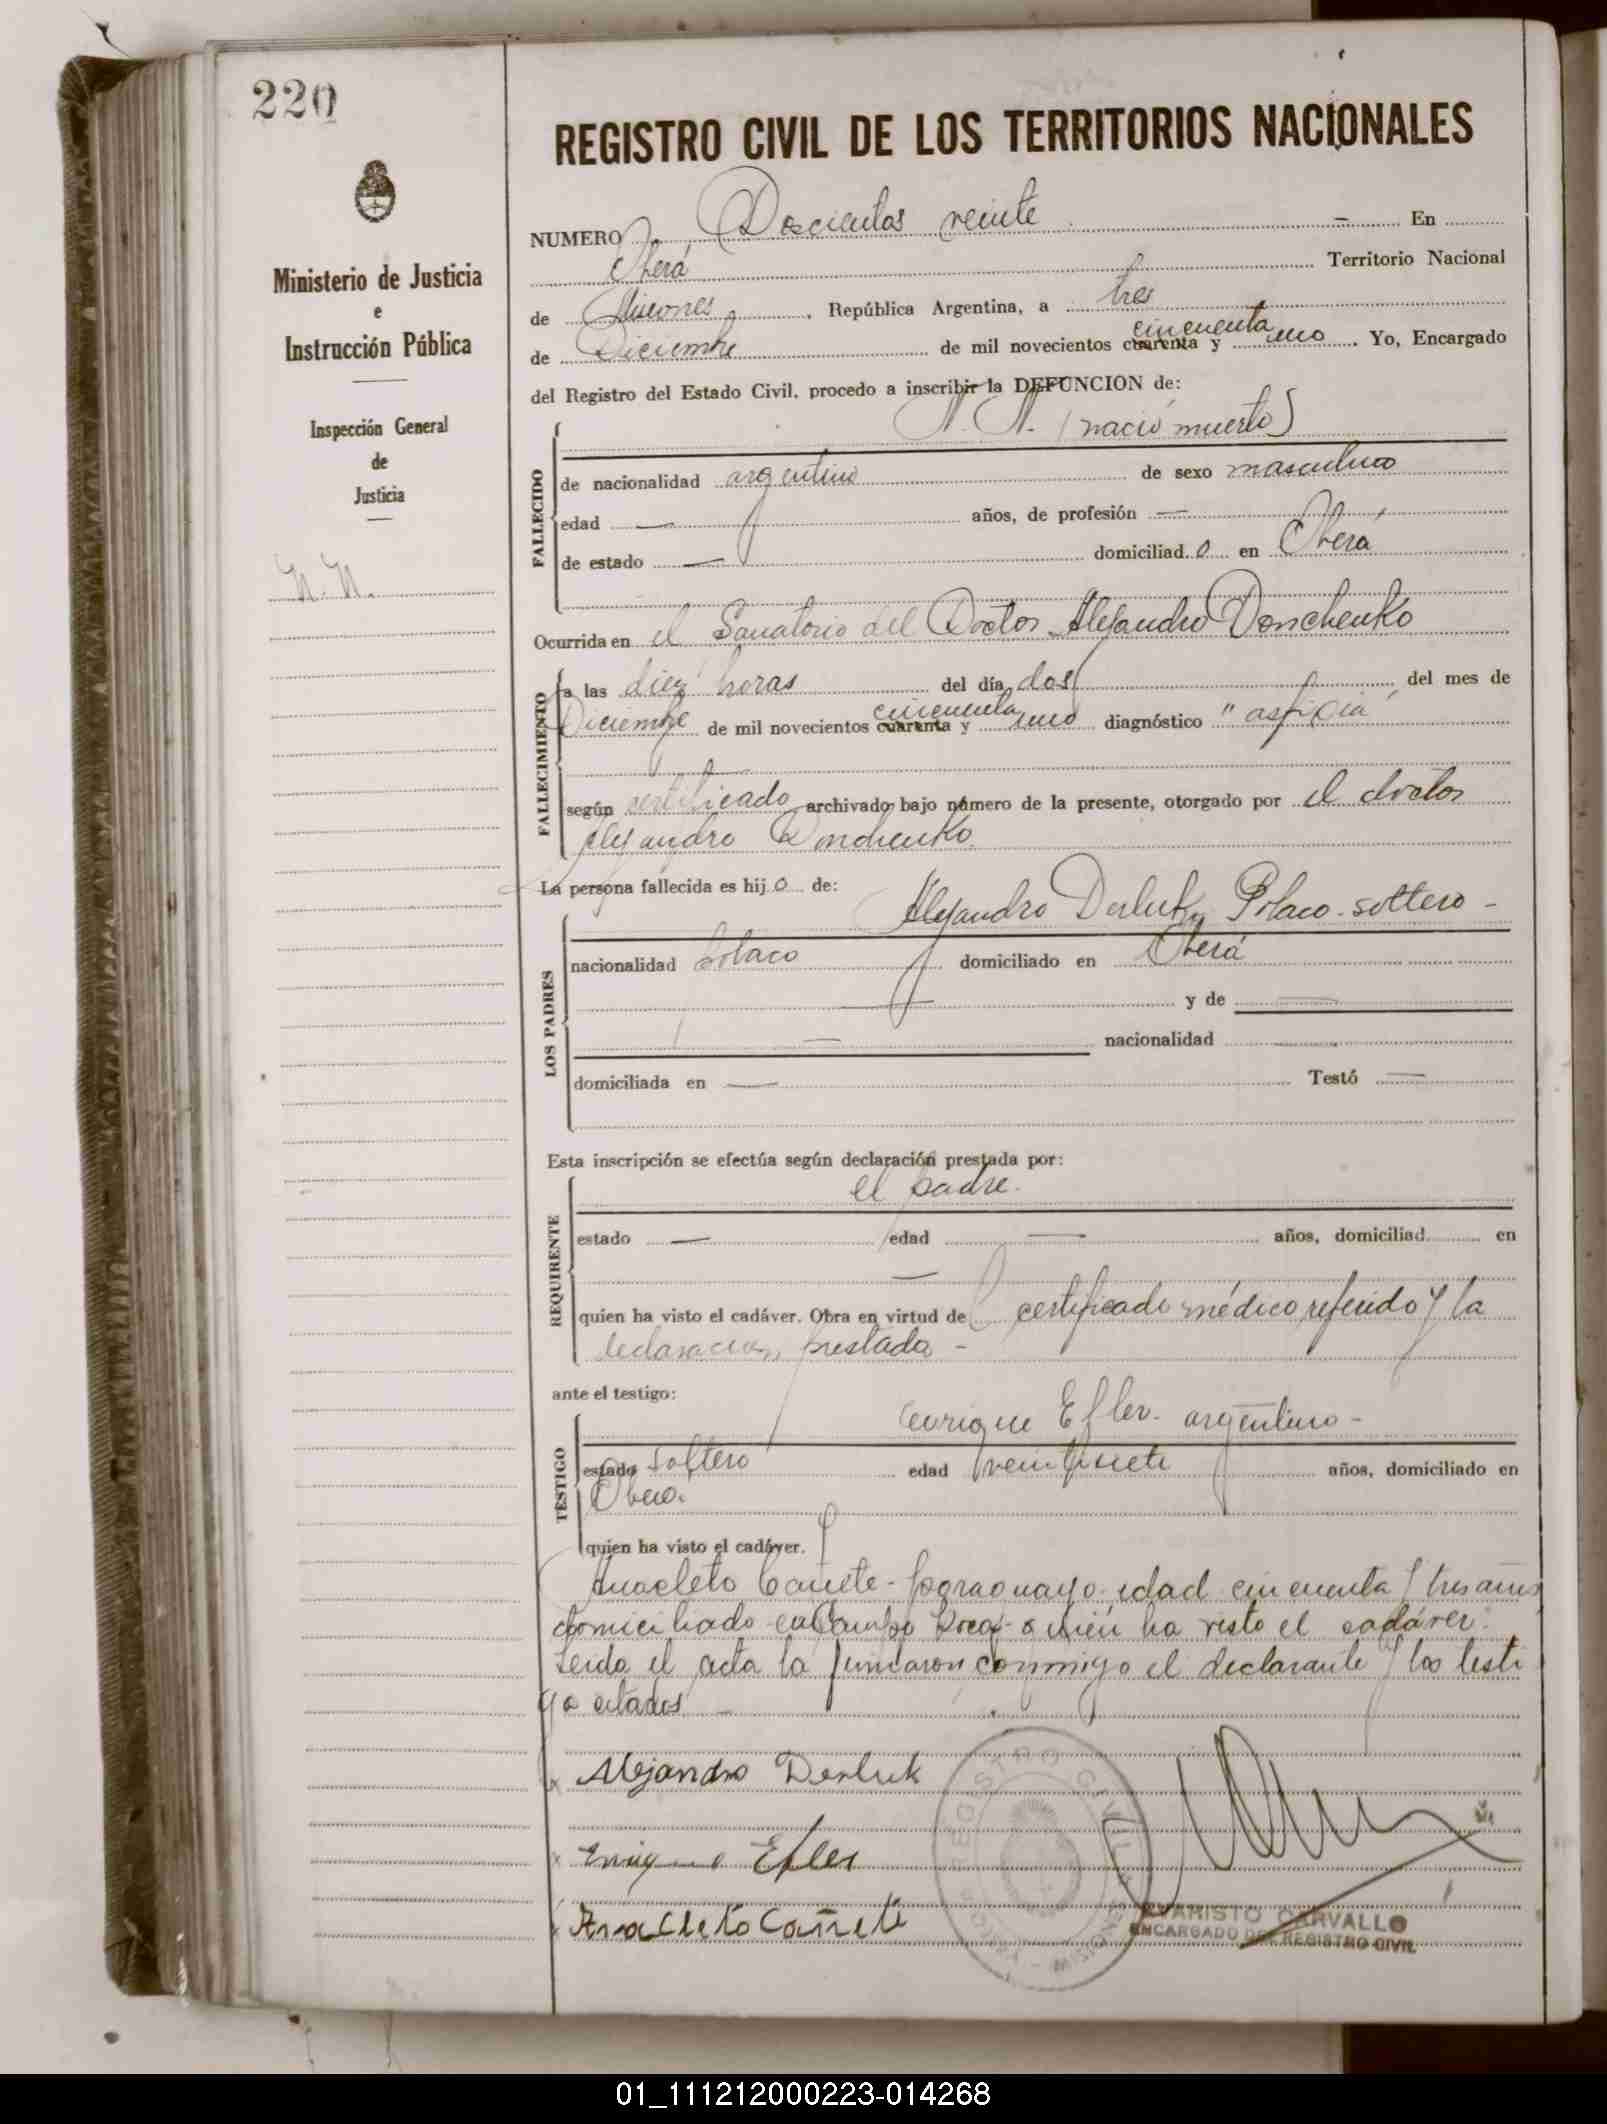 220
Ministerio de Justicia
e
Instrucción Pública
Inspección General
de
Justicia
N. N.
REGISTRO CIVIL DE LOS TERRITORIOS NACIONALES
NUMERO Doscientos veinte En
Oberá Territorio Nacional
de Misiones, República Argentina, a tres
cincuenta
de Diciembre de mil novecientos cuarenta y uno. Yo, Encargado
del Registro del Estado Civil, procedo a inscribir la DEFUNCION de:
N. N. (nació muerto)
FALLECIDO
de nacionalidad argentino de sexo masculino
edad — años, de profesión —
de estado — domiciliado en Oberá
Ocurrida en el Sanatorio del Doctor Alejandro Donchenko
FALLECIMIENTO
a las diez horas del día dos del mes de
cincuenta
Diciembre de mil novecientos cuarenta y uno diagnóstico "asfixia"
según certificado archivado bajo número de la presente, otorgado por el doctor
Alejandro Donchenko.
La persona fallecida es hijo de:
LOS PADRES
Alejandro Derluk, Polaco - soltero -
nacionalidad Polaco domiciliado en Oberá
— y de —
— nacionalidad
domiciliada en — Testó —
Esta inscripción se efectúa según declaración prestada por:
REQUIRENTE
el padre.
estado — edad — años, domiciliad en
—
quien ha visto el cadáver. Obra en virtud de certificado médico referido y la
declaración prestada -
ante el testigo:
TESTIGO
Enrique Efler - argentino -
estado soltero edad veintisiete años, domiciliado en
Oberá.
quien ha visto el cadáver.
Anacleto Cañete - paraguayo edad cincuenta y tres años
domiciliado en Campo quién ha visto el cadáver.
Leida el acta la firmaron conmigo el declarante y los testi
go citados -
Alejandro Derluk
Enrique Efler
Anacleto Cañete
REGISTRO CIVIL
MISIONES
EVARISTO CARVALLO
ENCARGADO DEL REGISTRO CIVIL
01_111212000223-014268